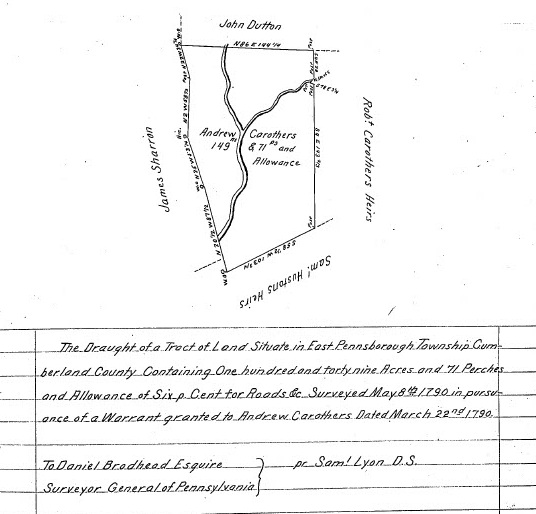 John Dutton
N86E 144½
Post
Andrew Carothers
149 as & 71 ps and
Allowance
James Sharron
Robt Carothers Heirs
Saml Hustons Heirs
The Draught of a Tract of Land Situate in East Pennsborough Township Cum-
berland County Containing One hundred and forty nine Acres and 71 Perches
and Allowance of Six p Cent for Roads &c Surveyed May 8th 1790 in pursu-
ance of a Warrant granted to Andrew Carothers Dated March 22nd 1790.
To Daniel Brodhead Esquire } pr Saml Lyon D.S.
Surveyor General of Pennsylvania